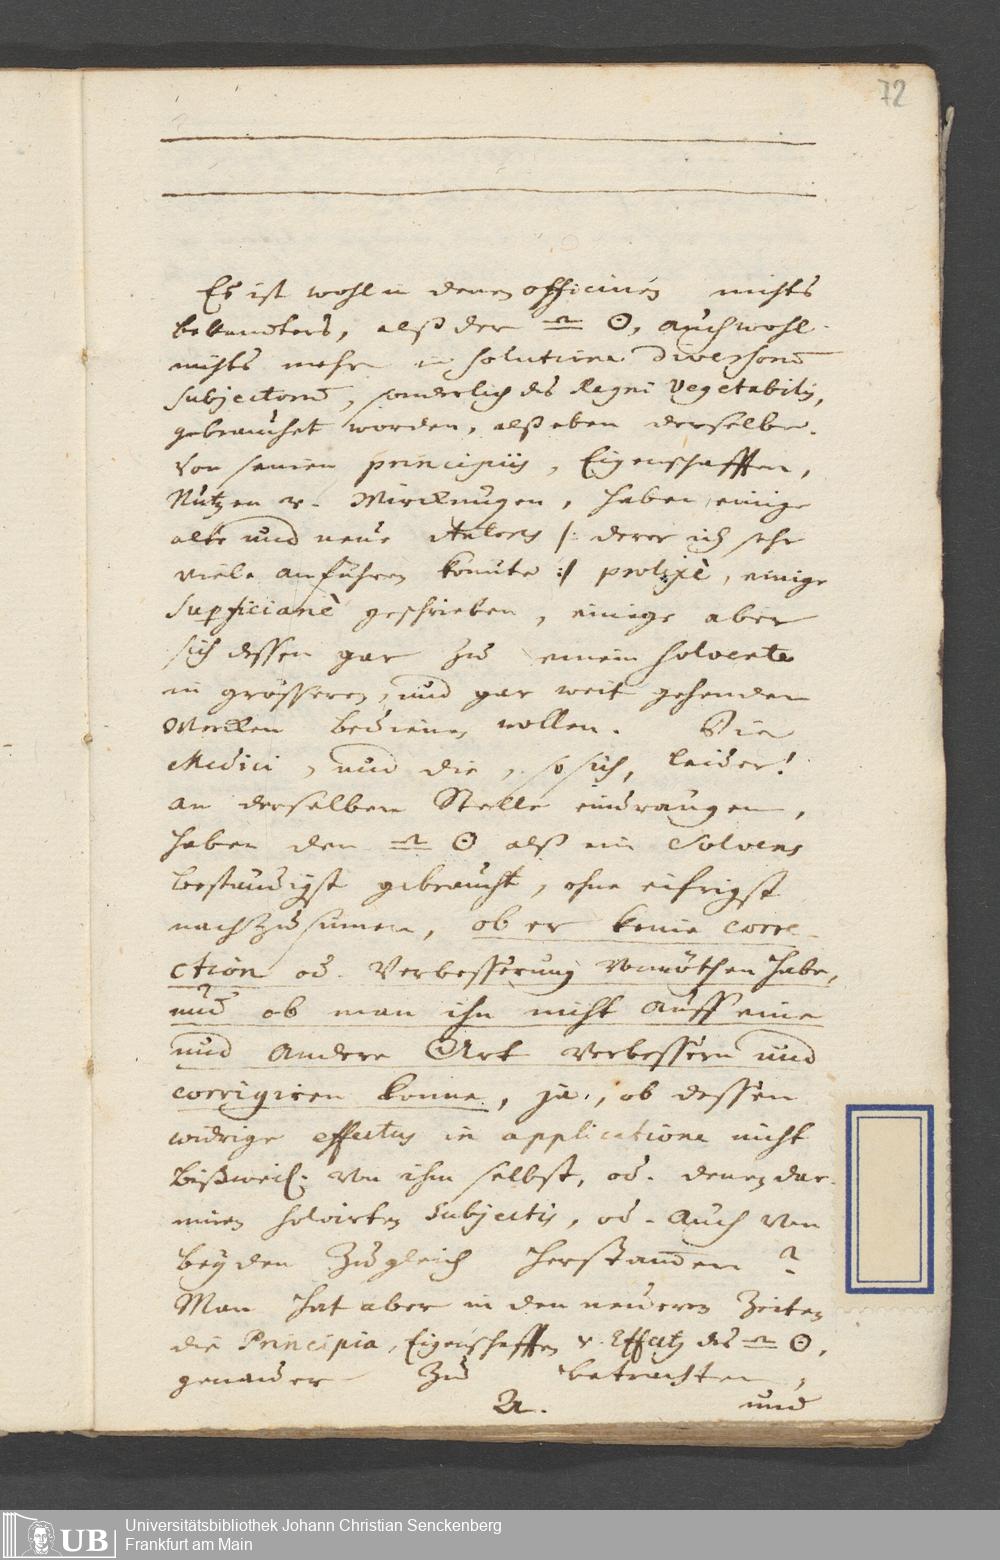 72
Es ist wohl in denen officinen nichts
bekandters, alß der ♎ ☉, auch wohl
nichts mehr in solutione diversorū
subjectorū, sonderlich des Regni Vegetabilis,
gebrauchet worden, alß eben derselbe.
Von seinen principiis, Eigenschafften,
Nutzen u. Wirckungen, haben einige
alte und neue Autores /: derer ich sehr
viele anführen konnte :/ prolixè, einige
geschrieben, einige aber
sich dessen gar zu einem solvente
in grösseren, und gar weit gehenden
Wercken bedienen wollen. Die
Medici, und die, so sich, leider!
an derselben Stelle eindrangen,
haben den ♎ ☉ alß ein Solvens
beständigst gebraucht, ohne eifrigst
nachzusinnen, ob er keine corre-
ction od. Verbesserung vonnöthen habe,
und ob man ihn nicht auff eine
und andere Art verbessern und
corrigiren könne, ja, ob dessen
widrige effectus in applicatione nicht
bißweil. von ihm selbst, od. denen dar-
innen solvirten Subjectis, od. auch von
beyden zugleich herstam̄en?
Man hat aber in den neueren Zeiten
die Principia, Eigenschafften u. Effectus des ♎ ☉,
genauer zu betrachten,
A. und
UB Universitätsbibliothek Johann Christian Senckenberg
Frankfurt am Main